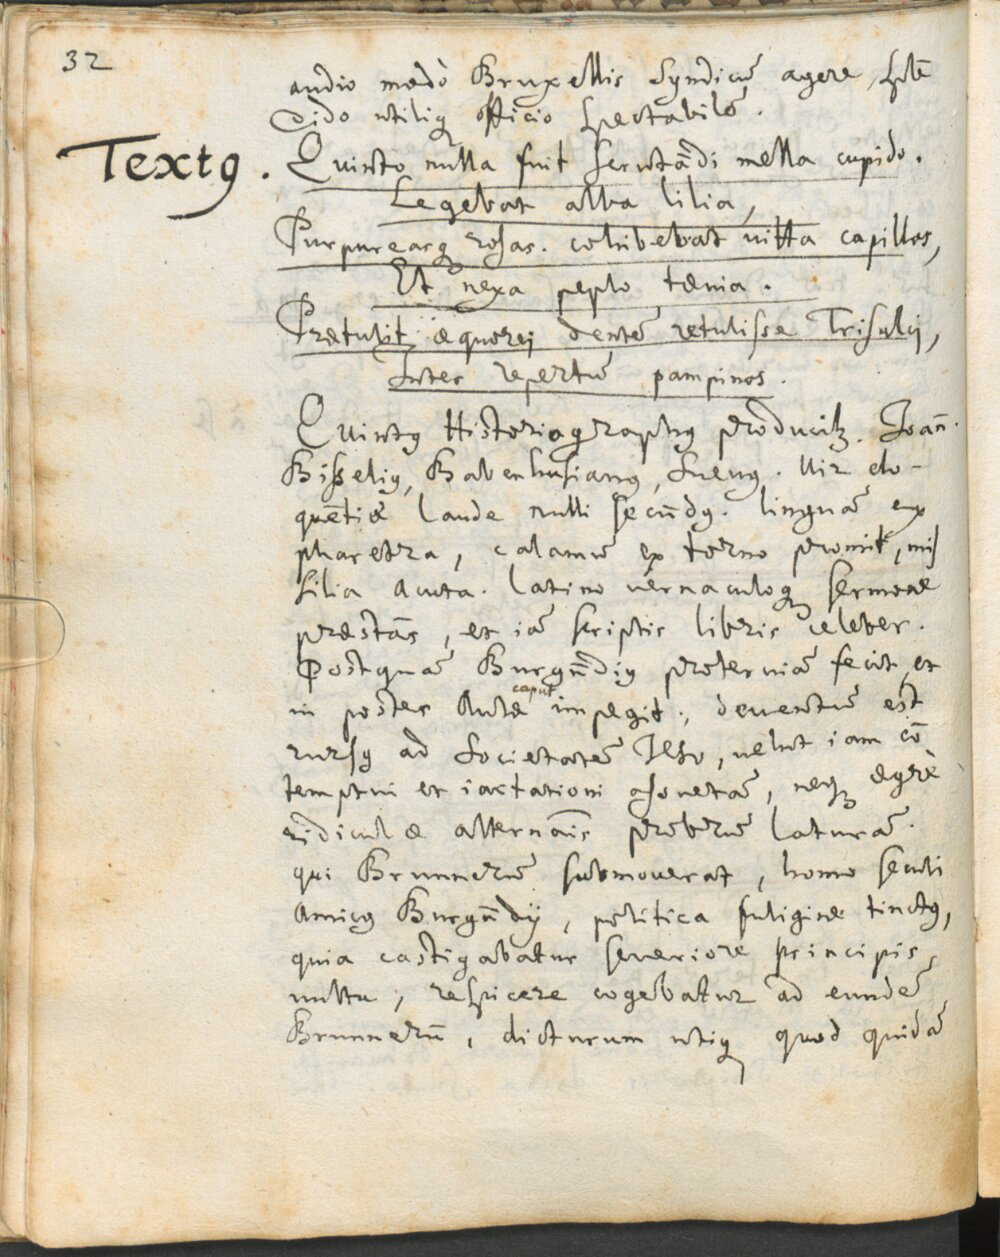 32
audio modò Bruxellis Syndicū agere, splē
dido utiliq officio spectabilē.
Textꝯ.
Quinto nulla fuit scrutādi mella cupido.
Legebat alba lilia,
Purpureasq rosas. cohibebat uitta capillos,
Et nexa peplo tænia.
Prætulit æquorej dentē retulisse Trisulcj,
Inter repertū pampinos.
Quintꝯ Historiographꝯ producitꝫ. Joan̄.
Bisseliꝯ, Babenhusianꝯ, Sueuꝯ. Uir elo-
quētiæ laude nulli secūdꝯ. linguā ex
pharetra, calamū ex torno promit, mis
silia acuta. latino uernaculoq sermone
præstās, et iā scriptis libris celeber.
Postquā Burgūdiꝯ proteruiā fecit, et
in postes Aulæ caput impegit; deuentū est
rursꝯ ad Societatē Jesu, uelut iam cō
temptui et iactationi assuetā, neqꝫ ægrè
ridiculæ alternātis probrū laturā.
qui Brunnerū submouerat, homo seculi
Amicꝯ Burgūdij, politica fuligine tinctꝯ,
quia castigabatur seueriore principis
uultu, respicere cogebatur ad eundē
Brunnerū, dicturum utiq quod quidā